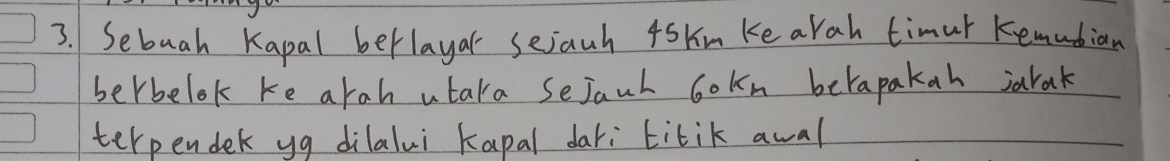 3. Sebuah Kapal berlayar sejauh 45Km ke arah timur Kemudian
berbelok ke arah utara sejauh 60Km berapakah jarak
terpendek yg dilalui kapal dari titik awal